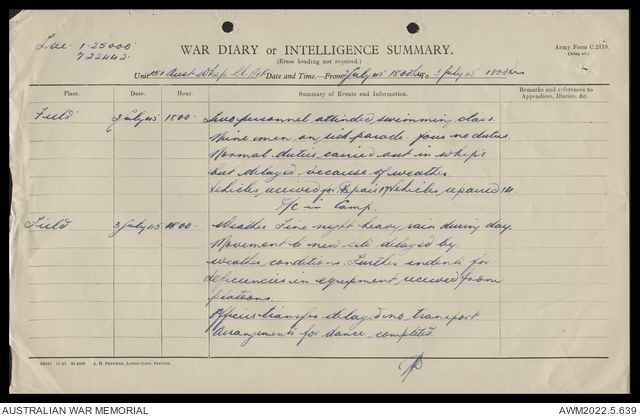 Lae 1-25000
722442
WAR DIARY OR INTELLIGENCE SUMMARY.
(Erase heading not required.)
Army Form C.2118.
(Adap. of.)
Unit Aust Date and Time.—From 2 July 45 1800 hrs to 3 July 45 1800 hrs
Place. Date. Hour. Summary of Events and Information. Remarks and references to Appendices, Diaries, &c.
Field 2 July 45 1800. Two personnel attended swimming class.
Nine men on sick parade. four no duties.
Normal duties carried out in w'shops
but delayed because of weather.
Vehicles received for Repair 17 Vehicles repaired 14.
O/C in Camp.
Field 3 July 45 1800 Weather Fine night heavy rain during day.
Movement to new site delayed by
weather conditions. Further indents for
deficiencies in equipment received from
platoons.
Officers transfer delayed no transport
Arrangements for dance completed.
A. H. Pettifer, Acting Govt. Printer.
AUSTRALIAN WAR MEMORIAL
AWM2022.5.639